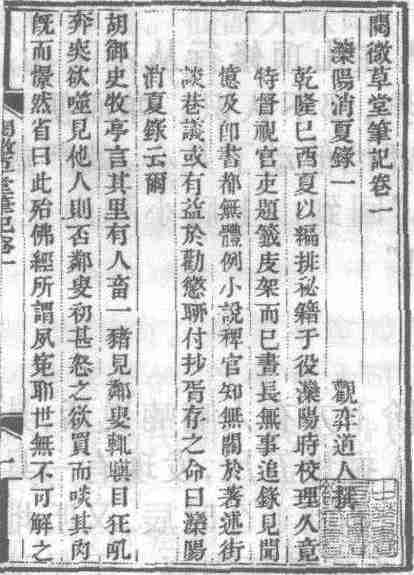 閱微草堂筆記卷一
灤陽消夏錄一　觀弈道人撰
乾隆己酉夏以編排祕籍于役灤陽時校理久竟
特督視官吏題籤庋架而已晝長無事追錄見聞
憶及卽書都無體例小說稗官知無關於著述街
談巷議或有益於勸懲聊付抄胥存之命曰灤陽
消夏錄云爾
胡御史牧亭言其里有人畜一豬見鄰叟輒瞋目狂吼
奔突欲噬見他人則否鄰叟初甚怒之欲買而啖其肉
旣而憬然省曰此殆佛經所謂夙寃耶世無不可解之